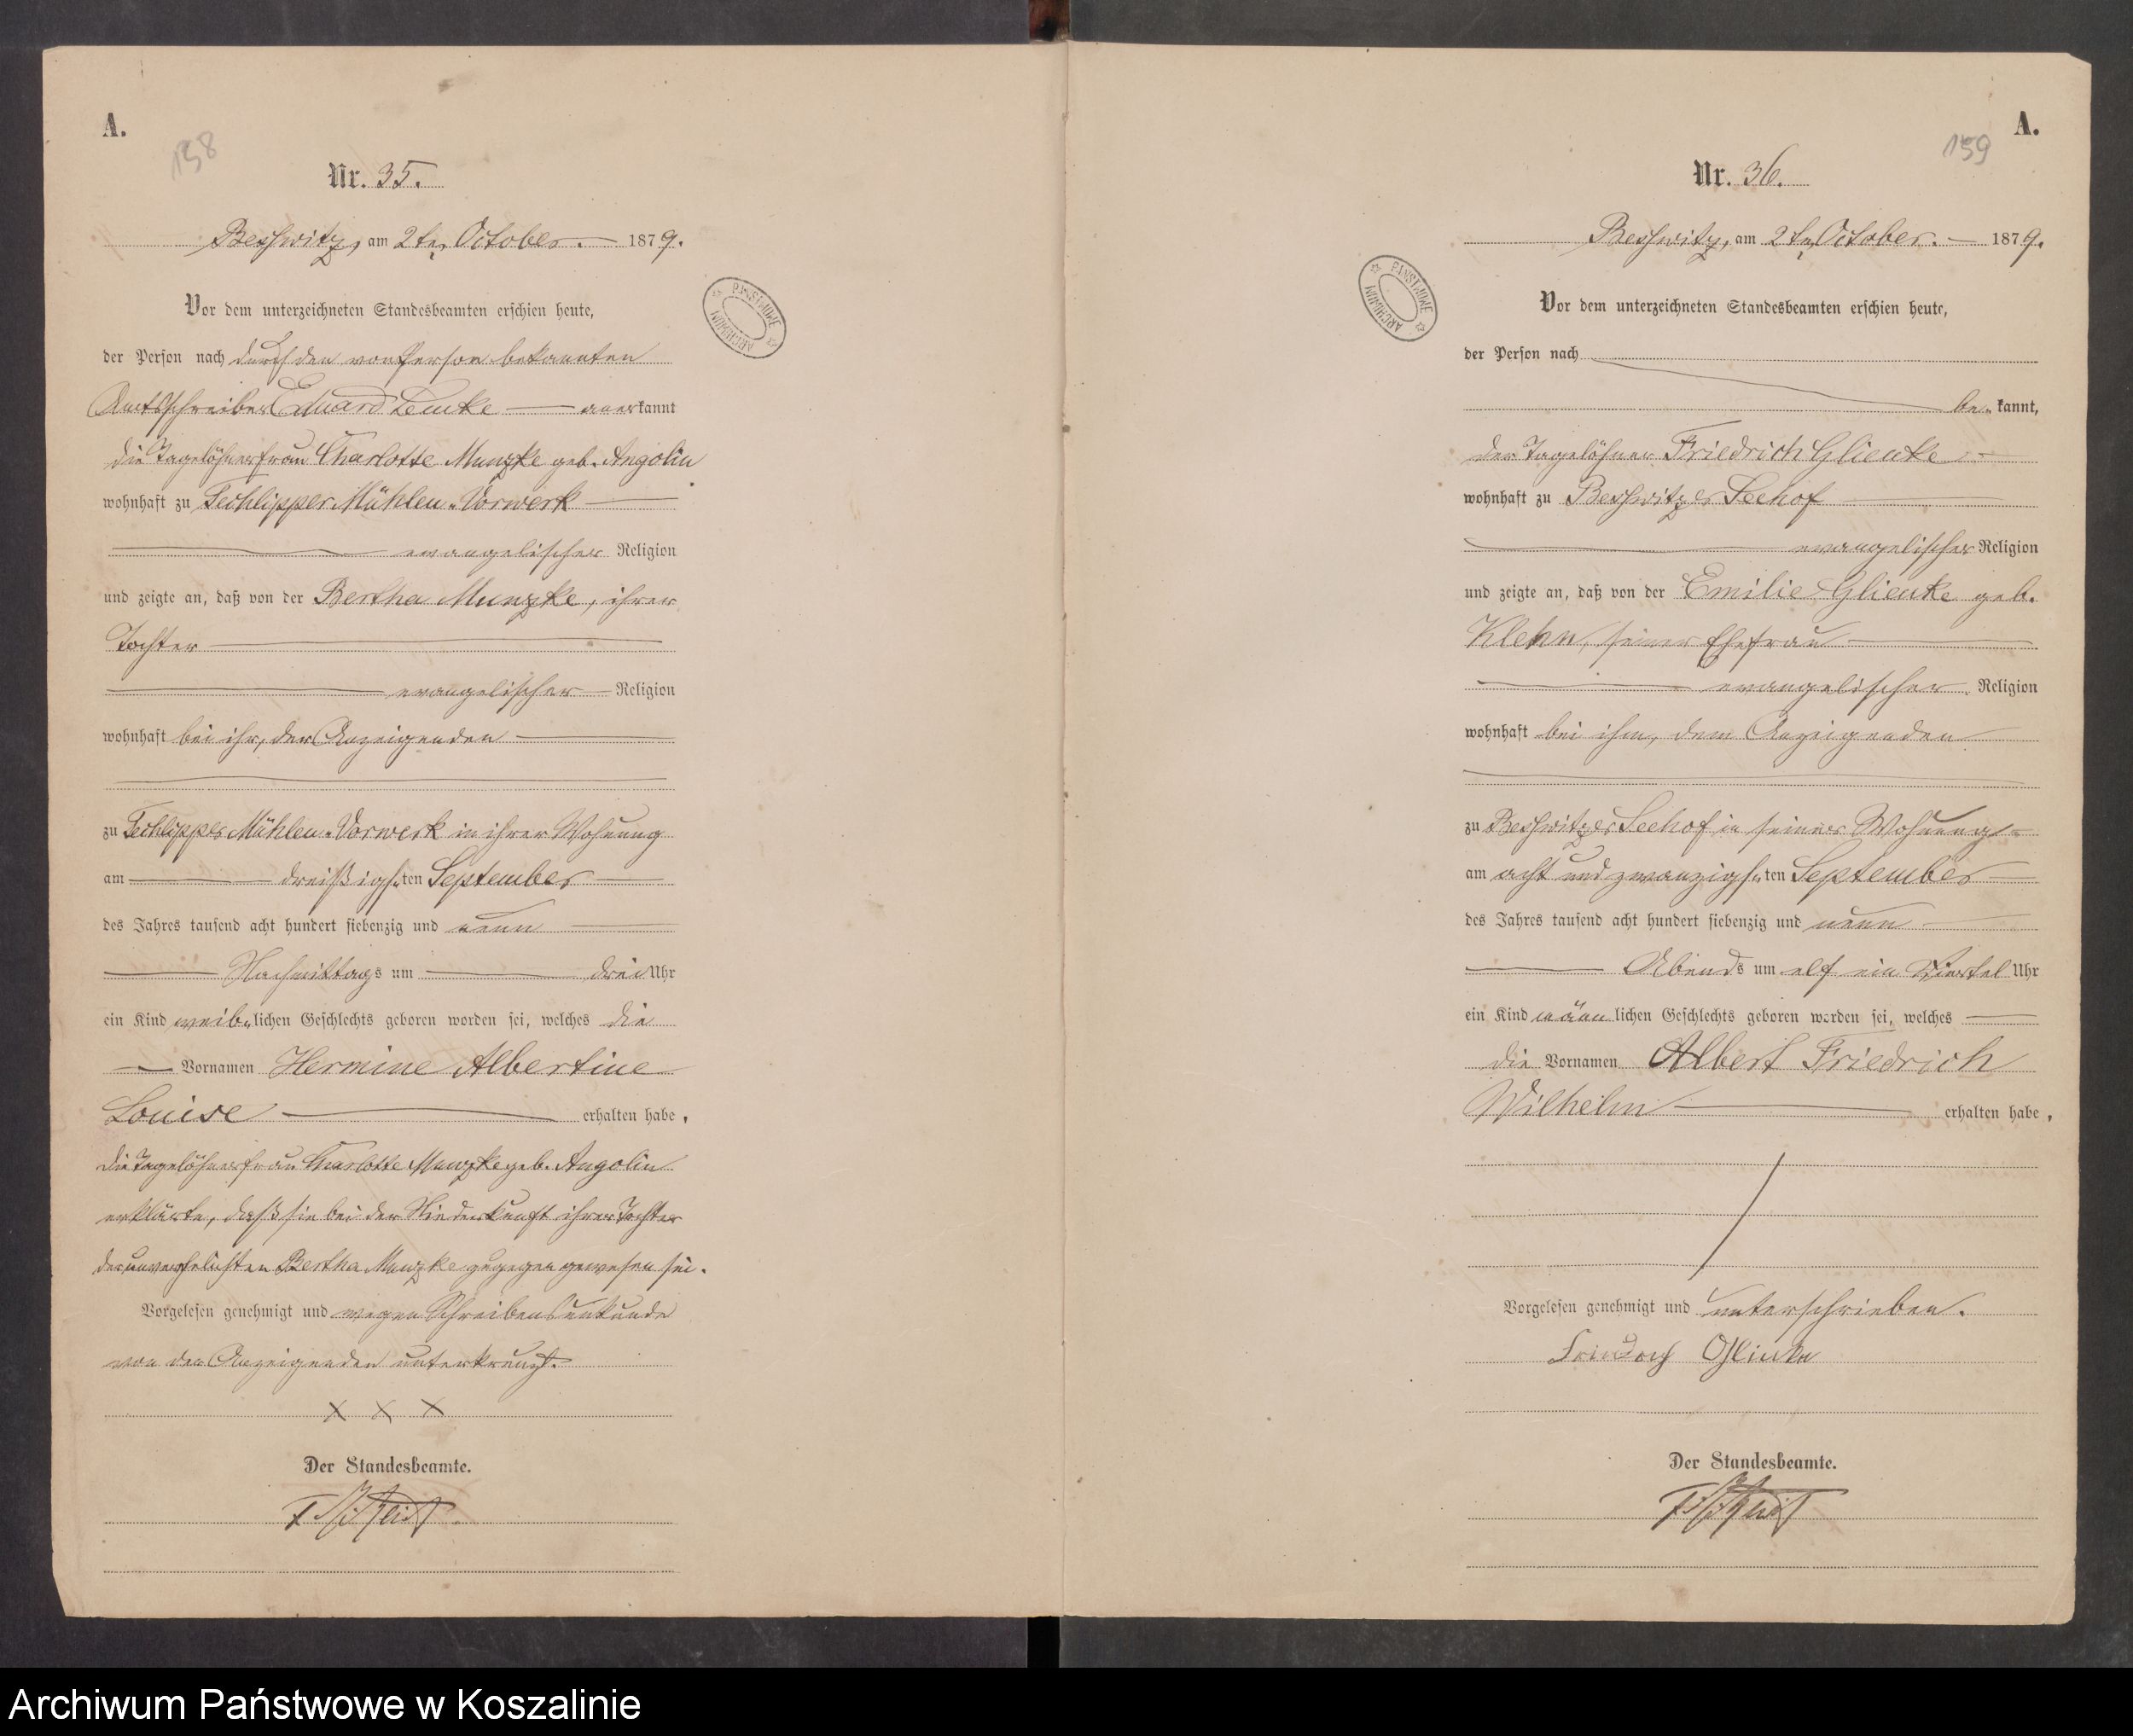 A.
158
Nr. 35.
Beßwitz, am 2ten October. 1879.
Vor dem unterzeichneten Standesbeamten erschien heute,
der Person nach durch den von Person bekannten
Amtsschreiber Eduard Lemke anerkannt
die Tagelöhnerfrau Charlotte Munzke geb. Angolin
wohnhaft zu Techlipper Mühlen-Vorwerk
evangelischer Religion
und zeigte an, daß von der Bertha Munzke, ihrer
Tochter
evangelischer Religion
wohnhaft bei ihr, der Anzeigenden
zu Techlipper Mühlen-Vorwerk in ihrer Wohnung
am dreißigsten September
des Jahres tausend acht hundert siebenzig und neun
Nachmittags um drei Uhr
ein Kind weiblichen Geschlechts geboren worden sei, welches die
Vornamen Hermine Albertine
Louise erhalten habe.
Die Tagelöhnerfrau Charlotte Munzke geb. Angolin
erklärte, daß sie bei der Niederkunft ihrer Tochter
der unverehelichten Bertha Munzke zugegen gewesen sei.
Vorgelesen genehmigt und wegen Schreibensunkunde
von der Anzeigenden unterkreuzt.
x x x
Der Standesbeamte.
ARCHIWUM PAŃSTWOWE
A.
159
Nr. 36.
Beßwitz, am 2ten October. 1879.
Vor dem unterzeichneten Standesbeamten erschien heute,
der Person nach
bekannt,
der Tagelöhner Friedrich Glienke
wohnhaft zu Beßwitzer Seehof
evangelischer Religion
und zeigte an, daß von der Emilie Glienke geb.
Klehn, seiner Ehefrau
evangelischer Religion
wohnhaft bei ihm, dem Anzeigenden
zu Beßwitzer Seehof in seiner Wohnung
am acht und zwanzigsten September
des Jahres tausend acht hundert siebenzig und neun
Abends um elf ein Viertel Uhr
ein Kind männlichen Geschlechts geboren worden sei, welches
die Vornamen Albert Friedrich
Wilhelm erhalten habe.
Vorgelesen genehmigt und unterschrieben.
Friedrich Glienke
Der Standesbeamte.
ARCHIWUM PAŃSTWOWE
Archiwum Państwowe w Koszalinie